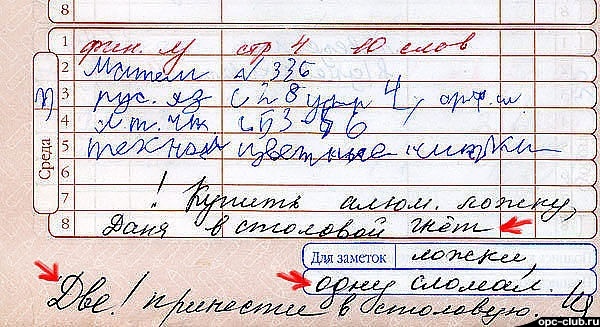 8
1 стр 4 10 слов
2 Матем № 336
3 рус. яз упр 4,
4
5 технол цветные
6
7 ! Купить алюм. ложку,
8 Даня в столовой гнёт
Среда
Для заметок ложки,
одну сломал.
Две! принести в столовую.
opc-club.ru